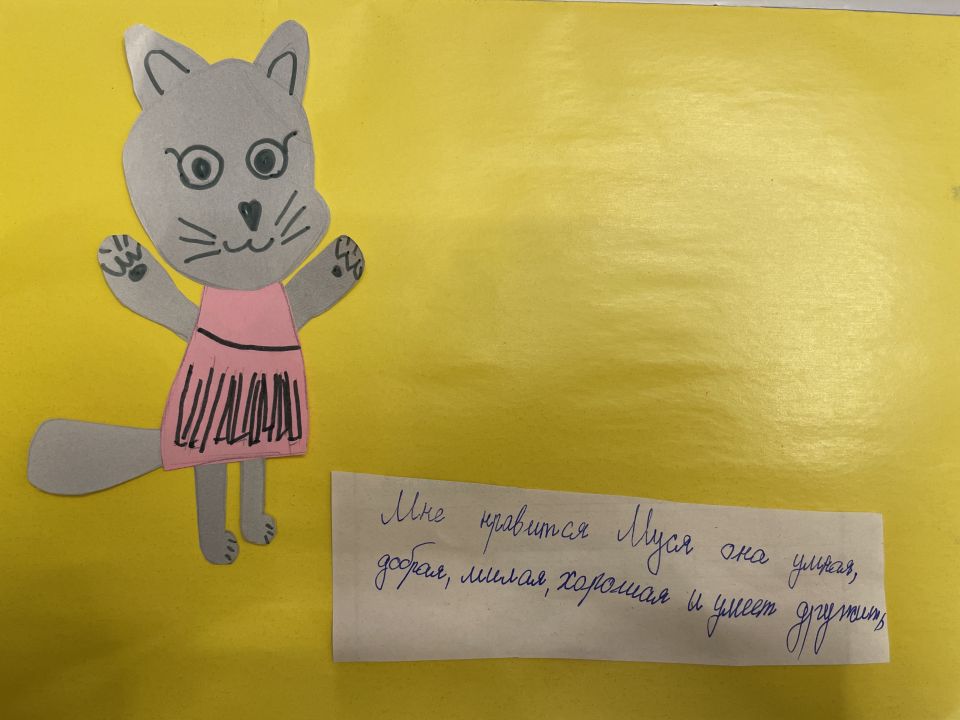 Мне нравится Муся она умная,
добрая, милая, хорошая и умеет дружить